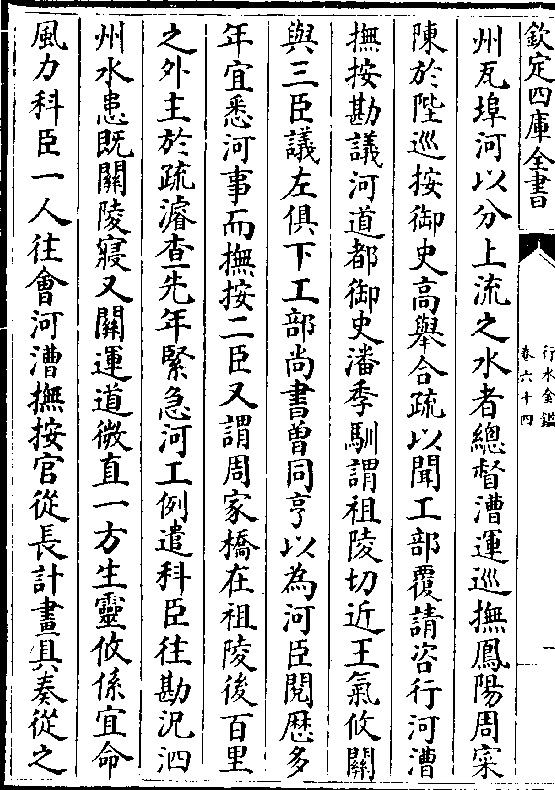 欽定四庫全書
行水金鑑
卷六十四
一
州瓦埠河以分上流之水者總督漕運巡撫鳳陽周寀
陳於陛巡按御史高舉合疏以聞工部覆請咨行河漕
撫按勘議河道都御史潘季馴謂祖陵切近王氣攸關
與三臣議左俱下工部尚書曽同亨以為河臣閱歴多
年宜悉河事而撫按二臣又謂周家橋在祖陵後百里
之外主於疏濬查先年緊急河工例遣科臣往勘況泗
州水患既關陵寢又關運道微直一方生靈攸係宜命
風力科臣一人往會河漕撫按官從長計畫具奏從之